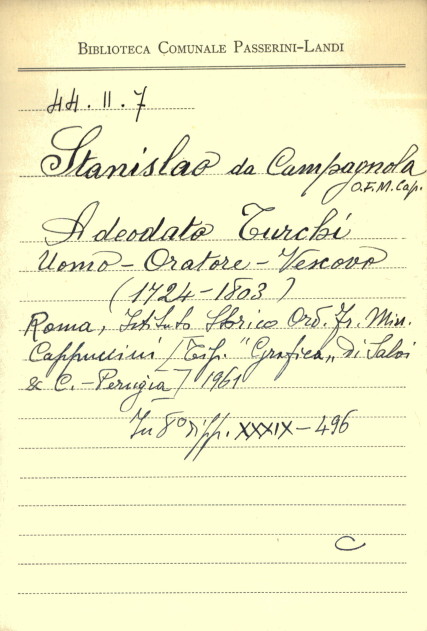 BIBLIOTECA COMUNALE PASSERINI-LANDI
44. II. 7
Stanislao da Campagnola
O.F.M. Cap.
Adeodato Turchi
Uomo - Oratore - Vescovo
(1724-1803)
Roma, Istituto Storico Ord. Fr. Min.
Cappuccini [Tip. "Grafica" di Salvi
& C. - Perugia] 1961
In 8° pp. XXXIX - 496
C